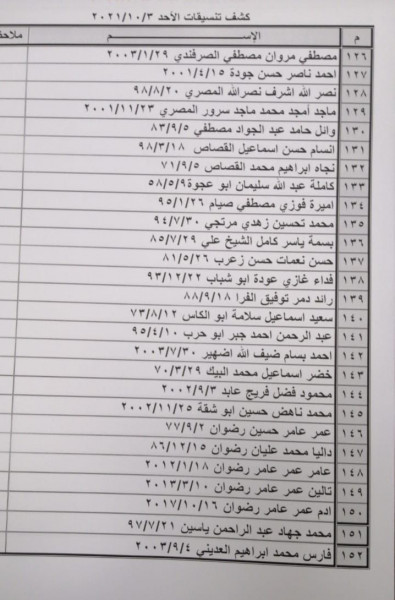 كشف تنسيقات الأحد ٢٠٢١/١٠/٣
م الإســـــــم ملاحظ
١٢٦ مصطفي مروان مصطفي الصرفندي ٢٠٠٣/١/٢٩
١٢٧ احمد ناصر حسن جودة ٢٠٠١/٤/١٥
١٢٨ نصر الله اشرف نصرالله المصري ٩٨/٨/٢٠
١٢٩ ماجد امجد محمد ماجد سرور المصري ٢٠٠١/١١/٢٣
١٣٠ وائل حامد عبد الجواد مصطفي ٨٣/٩/٥
١٣١ انسام حسن اسماعيل القصاص ٩٨/٣/١٨
١٣٢ نجاه ابراهيم محمد القصاص ٧١/٩/٥
١٣٣ كاملة عبد الله سليمان ابو عجوة ٥٨/٥/٩
١٣٤ اميرة فوزي مصطفي صيام ٩٥/١/٢٦
١٣٥ محمد تحسين زهدي مرتجي ٩٤/٧/٣٠
١٣٦ بسمة ياسر كامل الشيخ علي ٨٥/٧/٢٩
١٣٧ حسن نعمات حسن زعرب ٨١/٥/٢٦
١٣٨ فداء غازي عودة ابو شباب ٩٣/١٢/٢٢
١٣٩ رائد دمر توفيق الفرا ٨٨/٩/١٨
١٤٠ سعيد اسماعيل سلامة ابو الكاس ٧٣/٨/١٢
١٤١ عبد الرحمن احمد جبر ابو حرب ٩٥/٤/١٠
١٤٢ احمد بسام ضيف الله اضهير ٢٠٠٣/٧/٣٠
١٤٣ خضر اسماعيل محمد البيك ٧٠/٣/٢٩
١٤٤ محمود فضل فريج عابد ٢٠٠٢/٩/٣
١٤٥ محمد ناهض حسين ابو شقة ٢٠٠٢/١١/٢٥
١٤٦ عمر عامر حسين رضوان ٧٧/٩/٢
١٤٧ داليا محمد عليان رضوان ٨٦/١٢/١٥
١٤٨ عامر عمر عامر رضوان ٢٠١٢/١/١٨
١٤٩ تالين عمر عامر رضوان ٢٠١٣/٣/١٠
١٥٠ ادم عمر عامر رضوان ٢٠١٧/١٠/١٦
١٥١ محمد جهاد عبد الراحمن ياسين ٩٧/٧/٢١
١٥٢ فارس محمد ابراهيم العديني ٢٠٠٣/٩/٤